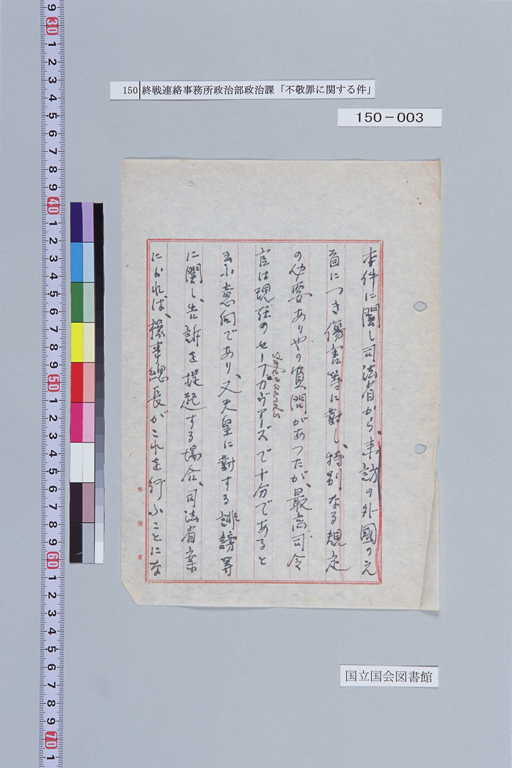 150 終戦連絡事務所政治部政治課「不敬罪に関する件」
150-003
本件に関し司法省から、来訪の外國の元
首につき傷害等に対し、特別なる規定
の必要ありやの質問があつたが、最高司令
官は現在のセーフガヴアーズで十分であると
safeguards
云ふ意向であり、又天皇に対する誹謗等
に関し告訴を提起する場合、司法省案
によれば、検事總長がこれを行ふことにな
外務省
国立国会図書館